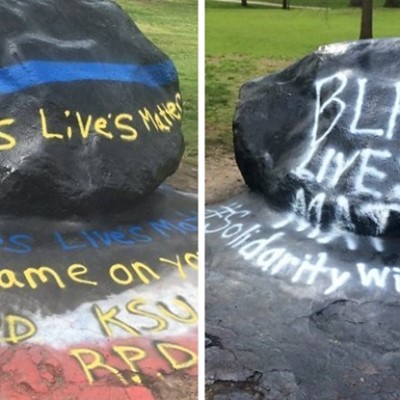 Live's Matter
Lives Mat
ame on yo
D KSU
RPD
BL
LIVE
MAT
#Solidarity wi